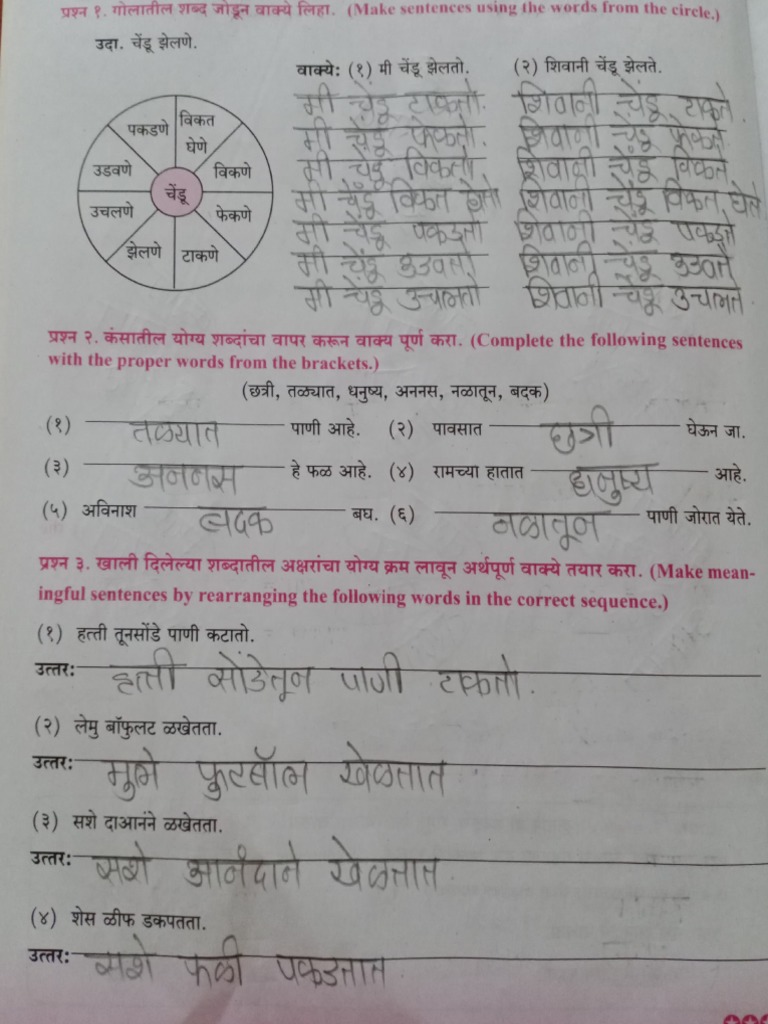 प्रश्न १. गोलातील शब्द जोडून वाक्ये लिहा. (Make sentences using the words from the circle.)
उदा. चेंडू झेलणे.
वाक्ये: (१) मी चेंडू झेलतो. (२) शिवानी चेंडू झेलते.
मी चेंडू टाकतो. शिवानी चेंडू टाकते.
मी चेंडू फेकतो. शिवानी चेंडू फेकते
मी चेंडू विकतो शिवानी चेंडू विकते
मी चेंडू विकत घेतो शिवानी चेंडू विकत घेते
मी चेंडू पकडतो शिवानी चेंडू पकडते
मी चेंडू उडवतो शिवानी चेंडू उडवते
मी चेंडू उचलतो शिवानी चेंडू उचलते
पकडणे विकत घेणे
उडवणे विकणे
चेंडू
उचलणे फेकणे
झेलणे टाकणे
प्रश्न २. कंसातील योग्य शब्दांचा वापर करून वाक्य पूर्ण करा. (Complete the following sentences
with the proper words from the brackets.)
(छत्री, तळ्यात, धनुष्य, अननस, नळातून, बदक)
(१) तळ्यात पाणी आहे. (२) पावसात छत्री घेऊन जा.
(३) अननस हे फळ आहे. (४) रामच्या हातात धनुष्य आहे.
(५) अविनाश बदक बघ. (६) नळातून पाणी जोरात येते.
प्रश्न ३. खाली दिलेल्या शब्दातील अक्षरांचा योग्य क्रम लावून अर्थपूर्ण वाक्ये तयार करा. (Make mean-
ingful sentences by rearranging the following words in the correct sequence.)
(१) हत्ती तूनसोंडे पाणी कटातो.
उत्तर: हत्ती सोंडेतून पाणी टाकतो.
(२) लेमु बॉफुलट ळखेतता.
उत्तर: मुले फुटबॉल खेळतात
(३) सशे दाआनंने ळखेतता.
उत्तर: सशे आनंदाने खेळतात
(४) शेस ळीफ डकपतता.
उत्तर: सशे फळी पकडतात